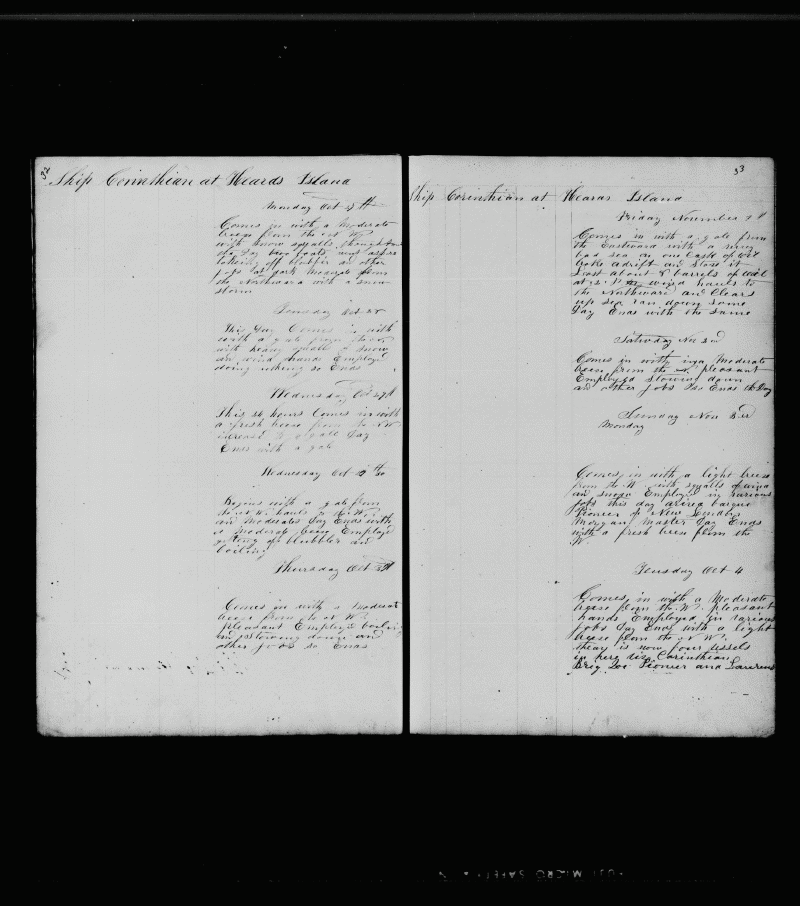 52
Ship Corinthian at Heards Island
Monday Oct 27th
Comes in with a Moderate
brese from the N W
with snow squalls throughout
the Day two boats went ashore
of blubber an other
jobs at dark Moderate from
the Northward with a snow
storm
Tuesday Oct 28
This Day Comes in with
with a gale from the
with heavy squalls of snow
an wind hands Employed
doing nothing so Ends
Wednesday Oct 29th
This 24 hours Comes in with
a fresh brese from the NW
increased to a gale Day
Ends with a gale
Wednesday Oct 30
Begins with a gale from
the N W hauls to the W
an Moderates Day Ends with
a Moderate brese Employed
getting of blubber and
boiling
Thursday Oct 31st
Comes in with a Moderate
brese from the N W
pleasant Employed boiling
and stowing down and
other jobs so Ends
53
Ship Corinthian at Heards Island
Friday November 1st
Comes in with a gale from
the Eastward with a
bad sea on one Cask of oil
broke adrift and stove it
Lost about 8 barrels of oil
at 12 wind hauls to
the Northward and Clears
up sea ran down some
Day Ends with the same
Saturday Nov 2nd
Comes in with a Moderate
brese from the pleasant
Employed stowing down
an other jobs So Ends the Day
Sunday Nov 3rd
Monday
Comes in with a light brese
from the W with squalls of wind
an snow Employed in various
jobs this day arived barque
Pioneer of New London
Morgan Master Day Ends
with a fresh brese from the
W
Tuesday Oct 4
Comes in with a Moderate
brese from the W pleasant
hands Employed in various
jobs Day Ends with a light
brese from the N W
thear is now four vessels
in here Corinthian
Brig Zoe Pioneer and Lawrens